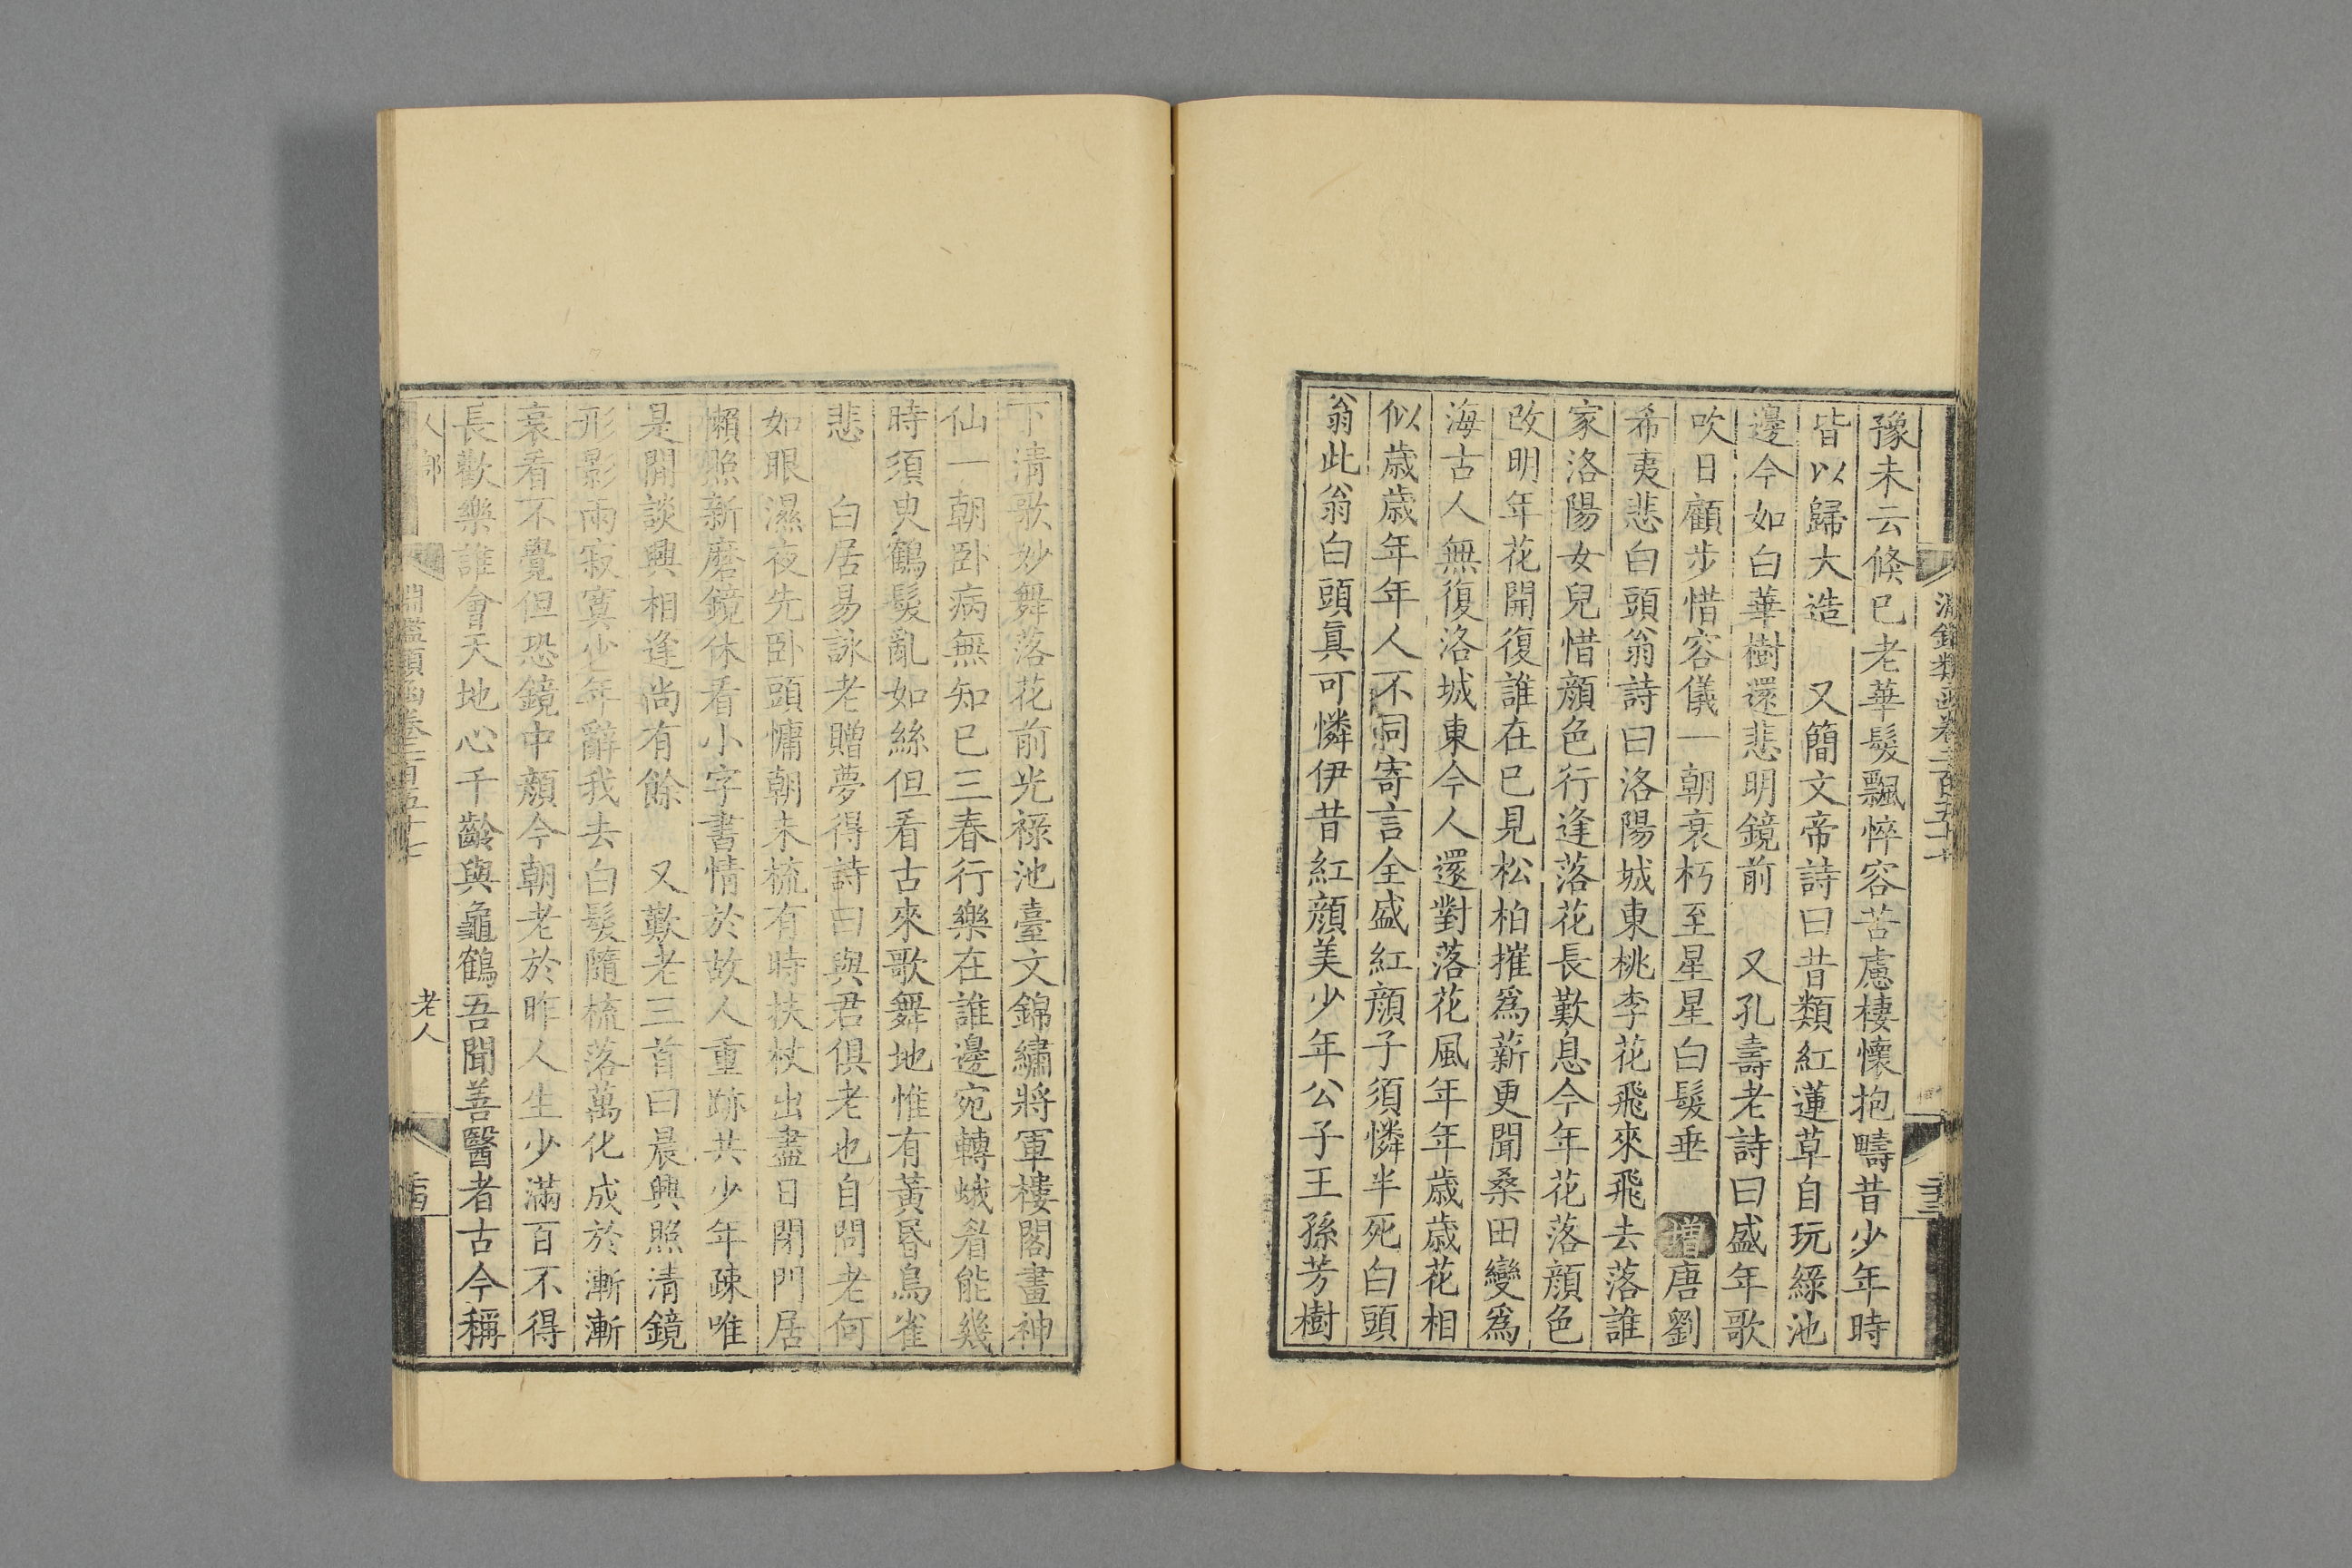 豫未云倏已老華髮飄悴容苦慮棲懷抱疇昔少年時
皆以歸大造　又簡文帝詩曰昔類紅蓮草自玩綠池
邊今如白華樹還悲明鏡前　又孔壽老詩曰盛年歌
吹日顧步惜容儀一朝衰朽至星星白髮垂　增唐劉
希夷悲白頭翁詩曰洛陽城東桃李花飛來飛去落誰
家洛陽女兒惜顏色行逢落花長歎息今年花落顏色
改明年花開復誰在已見松柏摧爲薪更聞桑田變爲
海古人無復洛城東今人還對落花風年年歲歲花相
似歲歲年年人不同寄言全盛紅顏子須憐半死白頭
翁此翁白頭眞可憐伊昔紅顏美少年公子王孫芳樹
下清歌妙舞落花前光祿池臺文錦繡將軍樓閣畫神
仙一朝卧病無知已三春行樂在誰邊宛轉蛾眉能幾
時須臾鶴髮亂如絲但看古來歌舞地惟有黃昏鳥雀
悲　白居易詠老贈夢得詩曰與君俱老也自問老何
如眼濕夜先卧頭慵朝未梳有時扶杖出盡日閉門居
懶照新磨鏡休看小字書情於故人重跡共少年疎唯
是閒談興相逢尚有餘　又歎老三首曰晨興照清鏡
形影兩寂寞少年辭我去白髮隨梳落萬化成於漸漸
衰看不覺但恐鏡中顏今朝老於昨人生少滿百不得
長歡樂誰會天地心千齡與龜鶴吾聞善醫者古今稱
淵鑑類函卷二百五十七
老人